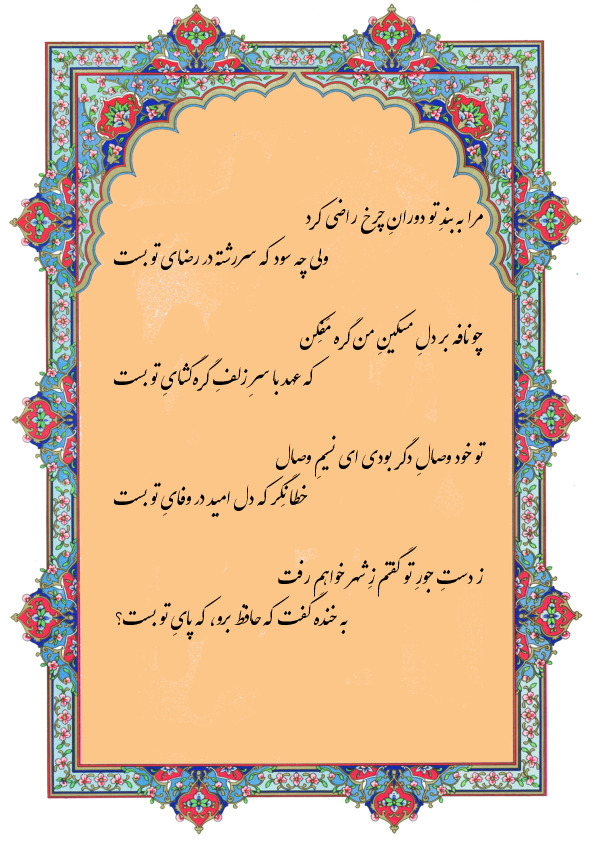 مرا به بندِ تو دورانِ چرخ راضی کرد
ولی چه سود که سررشته در رضای تو بست
چو نافه بر دلِ مسکینِ من گره مَفِکن
که عهد با سرِ زلفِ گره گشایِ تو بست
تو خود وصالِ دگر بودی ای نسیمِ وصال
خطا نِگَر که دل امید در وفایِ تو بست
ز دستِ جورِ تو گفتم زِ شهر خواهم رفت
به خنده گفت که حافظ برو، که پایِ تو بست؟